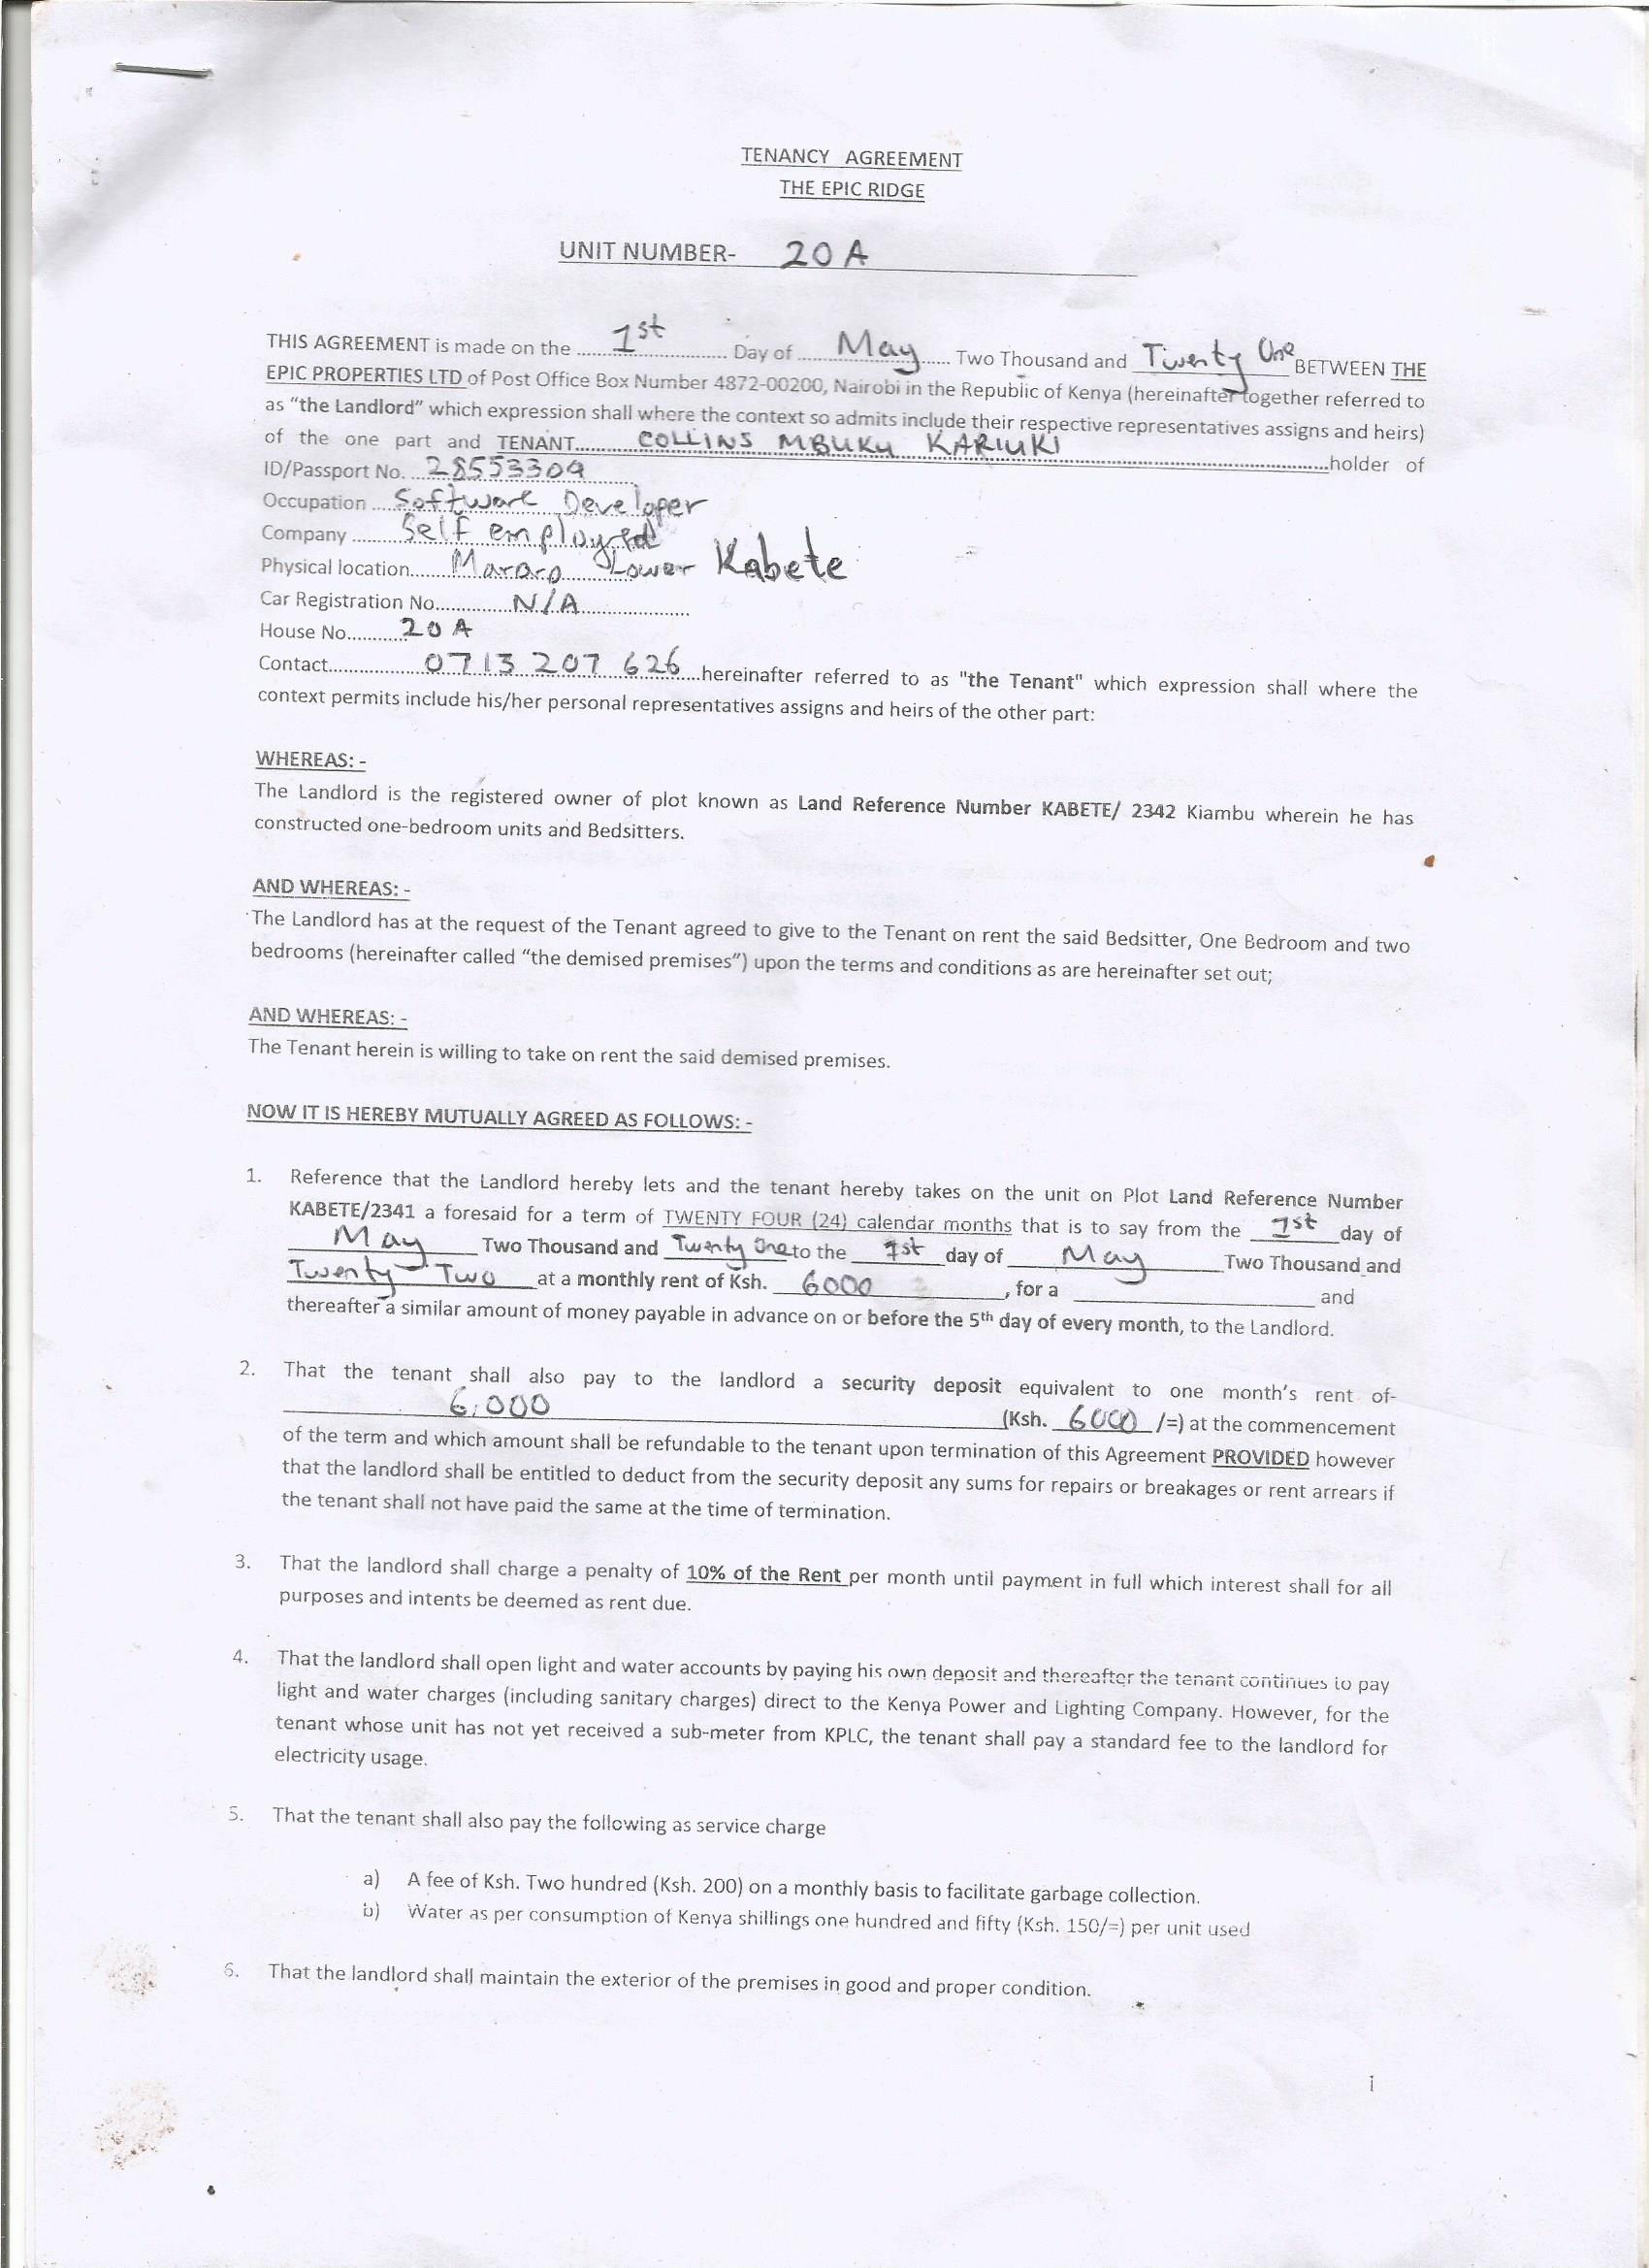 TENANCY AGREEMENT
THE EPIC RIDGE
UNIT NUMBER- 20 A
THIS AGREEMENT is made on the 1st Day of May Two Thousand and Twenty One BETWEEN THE
EPIC PROPERTIES LTD of Post Office Box Number 4872-00200, Nairobi in the Republic of Kenya (hereinafter together referred to
as "the Landlord" which expression shall where the context so admits include their respective representatives assigns and heirs)
of the one part and TENANT COLLINS MBUKU KARIUKI holder of
ID/Passport No. 28553309
Occupation Software Developer
Company Self employed
Physical location Lower Kabete
Car Registration No. N/A
House No. 20 A
Contact 0713 207 626 hereinafter referred to as "the Tenant" which expression shall where the
context permits include his/her personal representatives assigns and heirs of the other part:
WHEREAS: -
The Landlord is the registered owner of plot known as Land Reference Number KABETE/ 2342 Kiambu wherein he has
constructed one-bedroom units and Bedsitters.
AND WHEREAS: -
The Landlord has at the request of the Tenant agreed to give to the Tenant on rent the said Bedsitter, One Bedroom and two
bedrooms (hereinafter called "the demised premises") upon the terms and conditions as are hereinafter set out;
AND WHEREAS: -
The Tenant herein is willing to take on rent the said demised premises.
NOW IT IS HEREBY MUTUALLY AGREED AS FOLLOWS: -
1. Reference that the Landlord hereby lets and the tenant hereby takes on the unit on Plot Land Reference Number
KABETE/2341 a foresaid for a term of TWENTY FOUR (24) calendar months that is to say from the 1st day of
May Two Thousand and Twenty One to the 1st day of May Two Thousand and
Twenty Two at a monthly rent of Ksh. 6000, for a and
thereafter a similar amount of money payable in advance on or before the 5th day of every month, to the Landlord.
2. That the tenant shall also pay to the landlord a security deposit equivalent to one month's rent of-
6,000 (Ksh. 6000 /=) at the commencement
of the term and which amount shall be refundable to the tenant upon termination of this Agreement PROVIDED however
that the landlord shall be entitled to deduct from the security deposit any sums for repairs or breakages or rent arrears if
the tenant shall not have paid the same at the time of termination.
3. That the landlord shall charge a penalty of 10% of the Rent per month until payment in full which interest shall for all
purposes and intents be deemed as rent due.
4. That the landlord shall open light and water accounts by paying his own deposit and thereafter the tenant continues to pay
light and water charges (including sanitary charges) direct to the Kenya Power and Lighting Company. However, for the
tenant whose unit has not yet received a sub-meter from KPLC, the tenant shall pay a standard fee to the landlord for
electricity usage.
5. That the tenant shall also pay the following as service charge
a) A fee of Ksh. Two hundred (Ksh. 200) on a monthly basis to facilitate garbage collection.
b) Water as per consumption of Kenya shillings one hundred and fifty (Ksh. 150/=) per unit used
6. That the landlord shall maintain the exterior of the premises in good and proper condition.
i